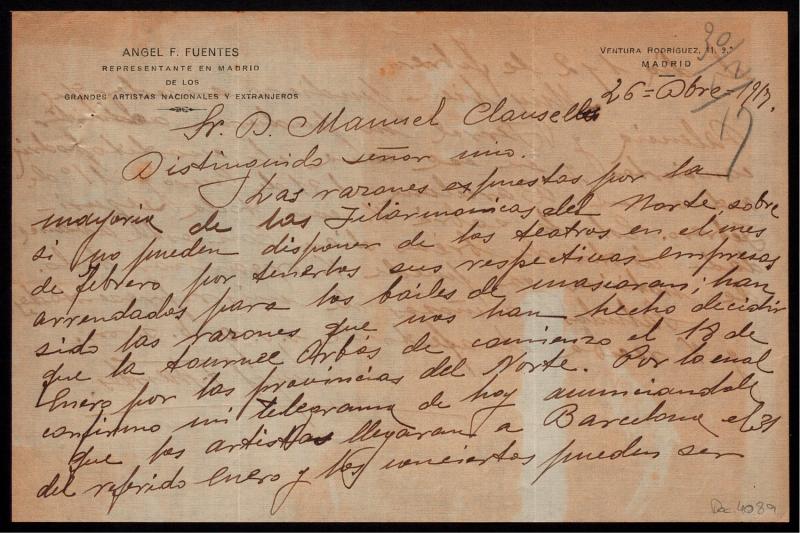 ANGEL F. FUENTES
REPRESENTANTE EN MADRID
DE LOS
GRANDES ARTISTAS NACIONALES Y EXTRANJEROS
VENTURA RODRÍGUEZ, 11, 3.º
MADRID
26 = Dbre 1917.
Sr. D. Manuel Clausells
Distinguido señor mio.
Las razones expuestas por la
mayoria de las Filarmonicas del Norte, sobre
si no pueden disponer de los teatros en el mes
de febrero por tenerlos sus respectivas empresas
arrendados para los bailes de mascaras; han
sido las razones que nos han hecho decidir
que la tournee Arbós de comienzo el 18 de
Enero por las provincias del Norte. Por lo cual
confirmo mi telegrama de hoy anunciandole
que los artistas llegaran a Barcelona el 31
del referido Enero y los conciertos pueden ser
Doc. 4089